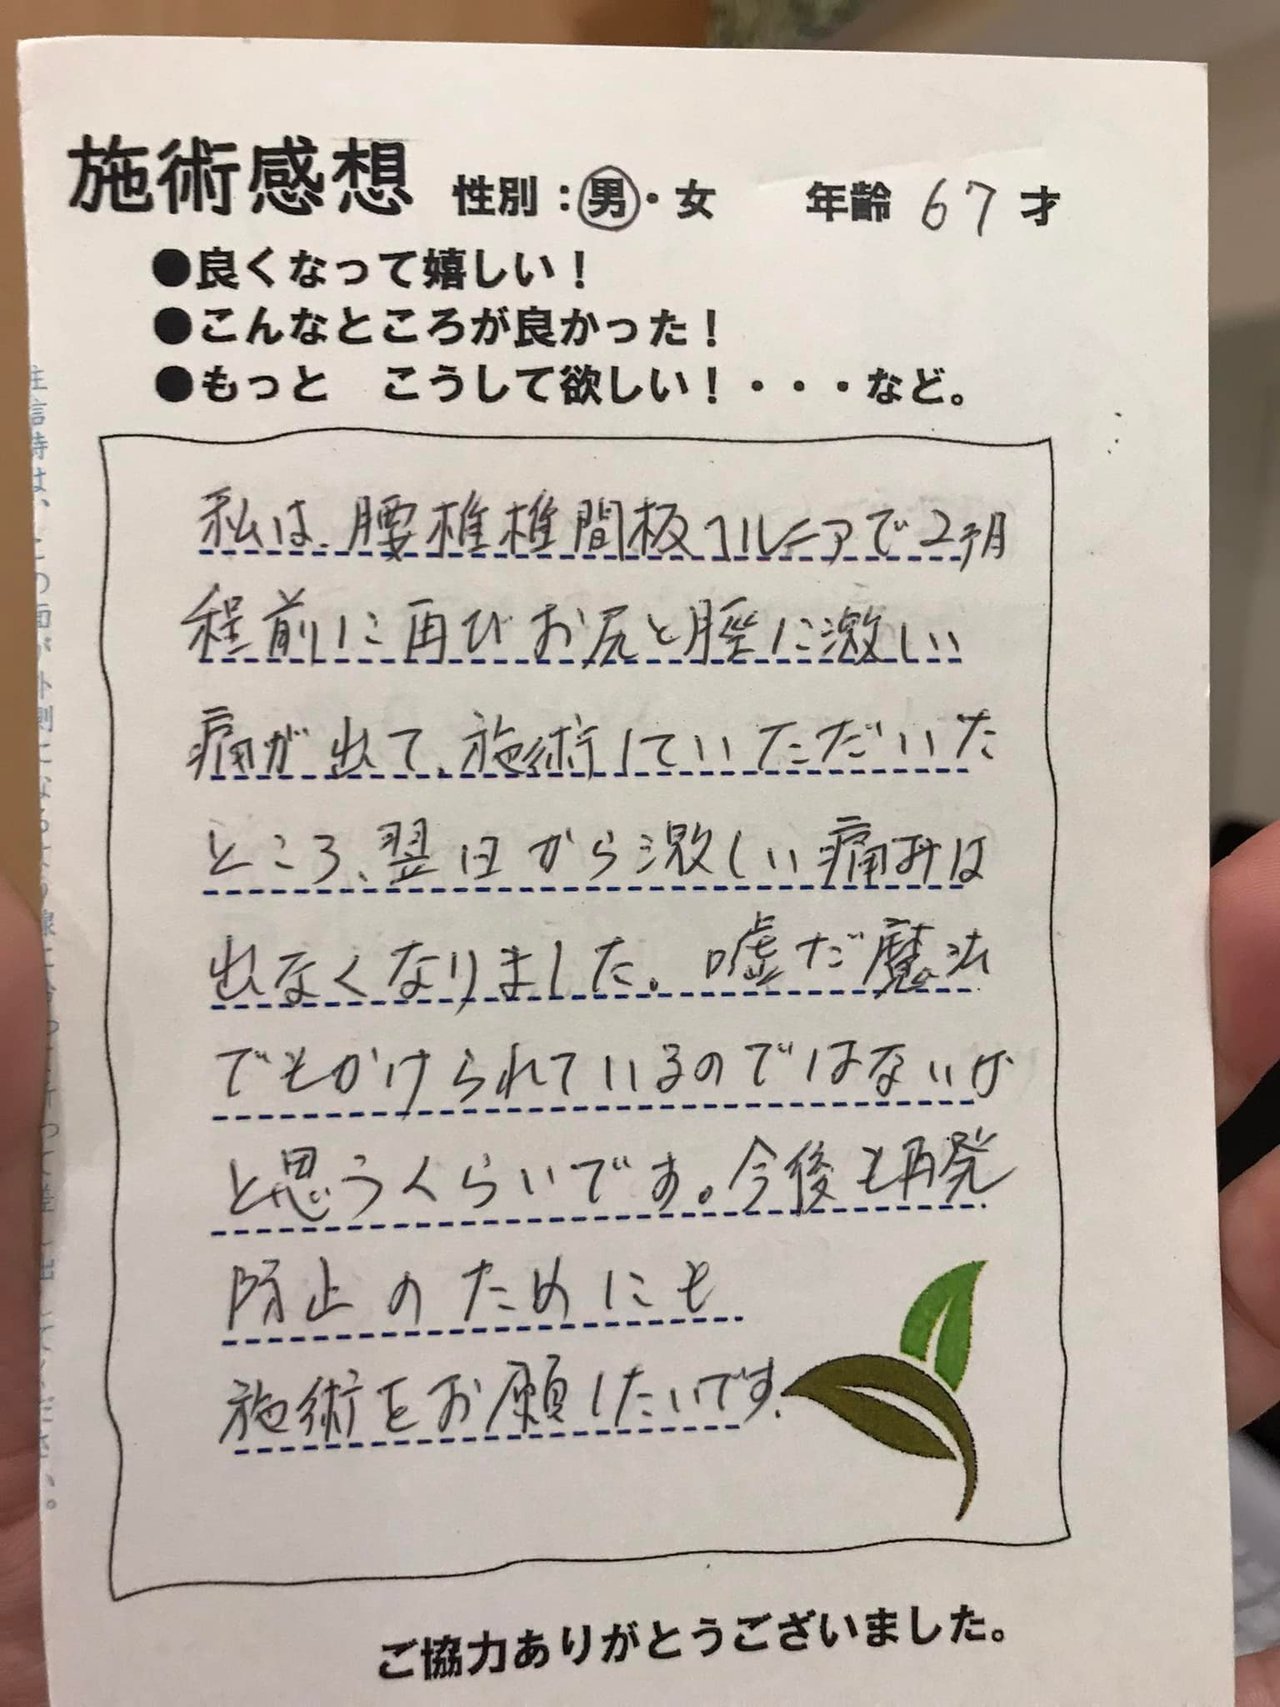 施術感想 性別：男・女 年齢 67 才
●良くなって嬉しい！
●こんなところが良かった！
●もっと こうして欲しい！・・・など。
私は、腰椎椎間板ヘルニアで2ヶ月
程前に再びお尻と脛に激しい
痛が出て、施術していただいた
ところ、翌日から激しい痛みは
出なくなりました。嘘だ魔法
でもかけられているのではないか
と思うくらいです。今後も再発
防止のためにも
施術をお願したいです。
ご協力ありがとうございました。